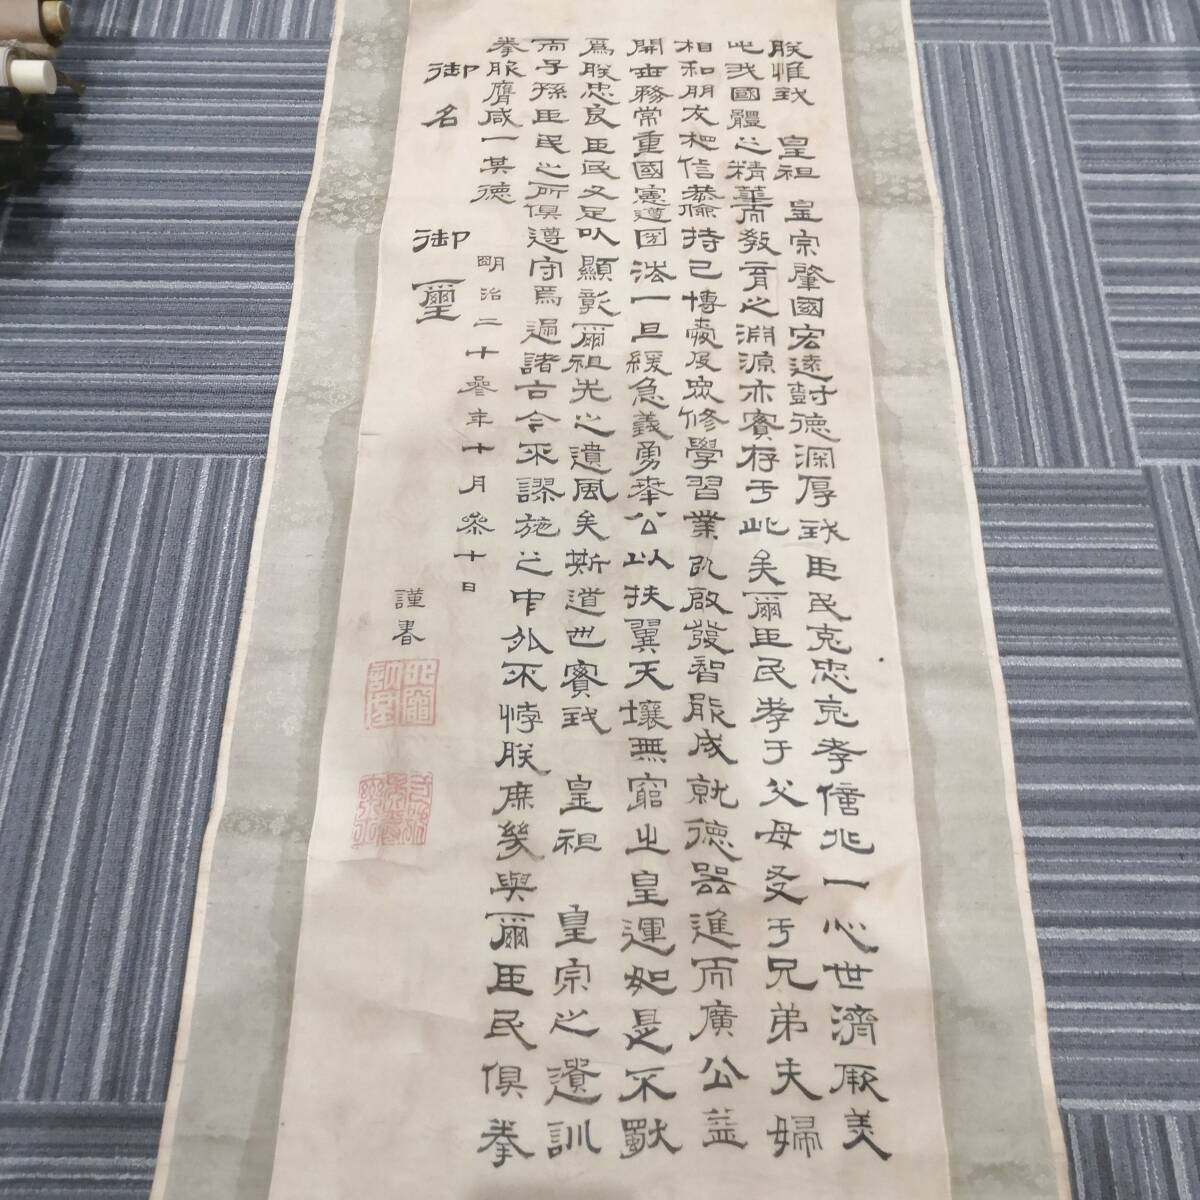 朕惟我　皇祖　皇宗肇國宏遠尌德深厚我臣民克忠克孝億兆一心世濟厥美
此我國體之精華而教育之淵源亦實存于此矣爾臣民孝于父母友于兄弟夫婦
相和朋友相信恭儉持己博愛及衆修學習業以啟發智能成就德器進而廣公益
開世務常重國憲遵国法一旦緩急義勇奉公以扶翼天壤無窮之皇運如是不獨
爲朕忠良臣民又足以顯彰爾祖先之遺風矣斯道也實我　皇祖　皇宗之遺訓
而子孫臣民之所俱遵守焉通諸古今不謬施之中外不悖朕庶幾與爾臣民俱拳
拳服膺咸一其德
明治二十參年十月參十日
御名　御璽
謹書